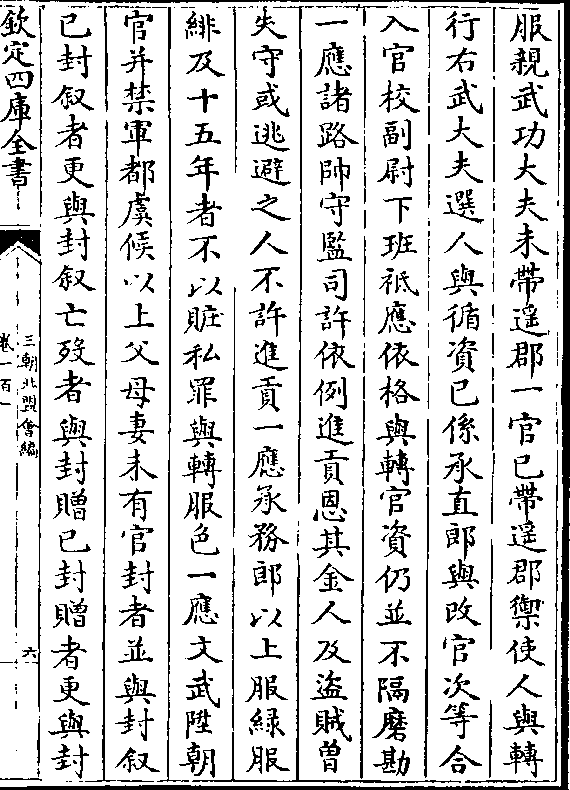 服親武功大夫未帶遥郡一官已帶遥郡禦使人與轉
行右武大夫選人與循資已係承直郎與改官次等合
入官校副尉下班祗應依格與轉官資仍並不隔磨勘
一應諸路帥守監司許依例進貢恩其金人及盗賊曾
失守或逃避之人不許進貢一應承務郎以上服緑服
緋及十五年者不以贓私罪與轉服色一應文武陞朝
官并禁軍都虞候以上父母妻未有官封者並與封叙
已封叙者更與封叙亡殁者與封贈已封贈者更與封
欽定四庫全書
三朝北盟會編
卷一百一
六